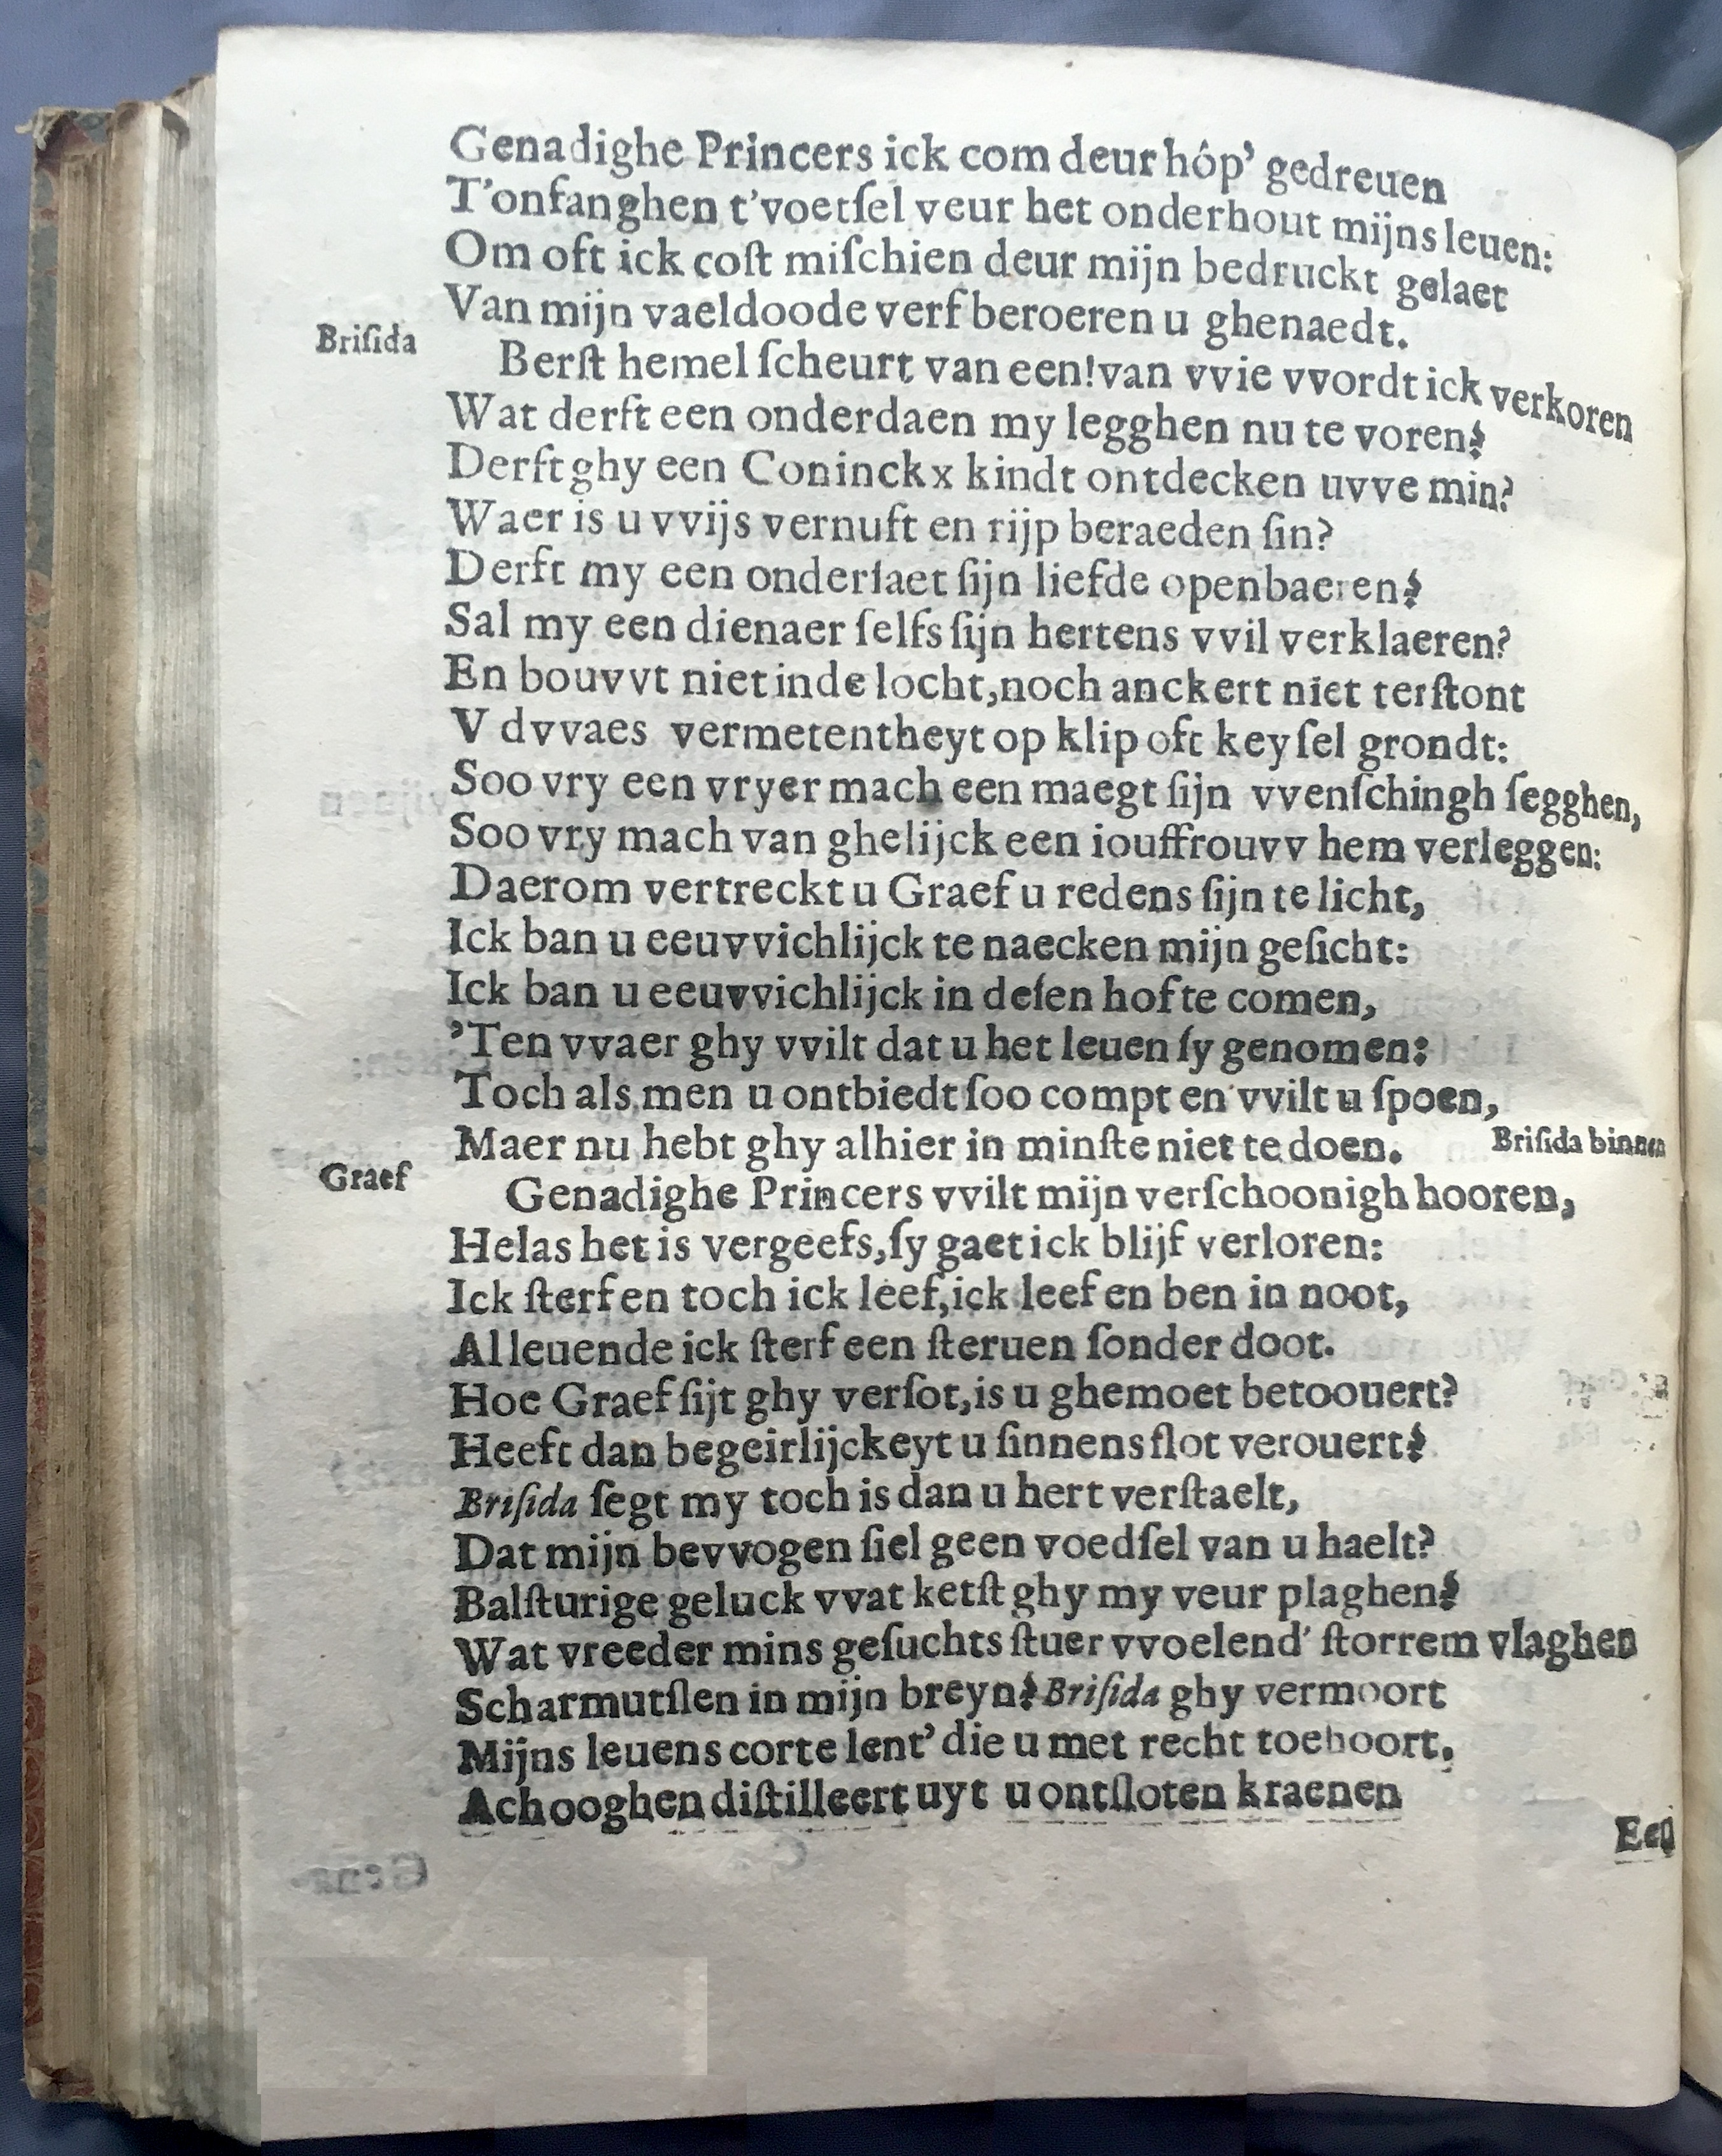 Genadighe Princers ick com deur hôp' gedreuen
T'onfanghen t'voetſel veur het onderhout mijns leuen:
Om oft ick coſt miſchien deur mijn bedruckt gelaet
Van mijn vaeldoode verf beroeren u ghenaedt.
Briſida
Berſt hemel ſcheurt van een! van vvie vvordt ick verkoren
Wat derft een onderdaen my legghen nu te voren?
Derft ghy een Coninckx kindt ontdecken uvve min?
Waer is u vvijs vernuft en rijp beraeden ſin?
Derft my een onderſaet ſijn liefde openbaeren?
Sal my een dienaer ſelfs ſijn hertens vvil verklaeren?
En bouvvt niet inde locht, noch anckert niet terſtont
V dvvaes vermetentheyt op klip oft keyſel grondt:
Soo vry een vryer mach een maegt ſijn vvenſchingh ſegghen,
Soo vry mach van ghelijck een iouffrouvv hem verleggen:
Daerom vertreckt u Graef u redens ſijn te licht,
Ick ban u eeuvvichlijck te naecken mijn geſicht:
Ick ban u eeuvvichlijck in deſen hof te comen,
'Ten vvaer ghy vvilt dat u het leuen ſy genomen:
Toch als men u ontbiedt ſoo compt en vvilt u ſpoen,
Maer nu hebt ghy alhier in minſte niet te doen. Briſida binnen
Graef
Genadighe Princers vvilt mijn verſchoonigh hooren,
Helas het is vergeefs, ſy gaet ick blijf verloren:
Ick ſterf en toch ick leef, ick leef en ben in noot,
Al leuende ick ſterf een ſteruen ſonder doot.
Hoe Graef ſijt ghy verſot, is u ghemoet betoouert?
Heeft dan begeirlijckeyt u ſinnens ſlot verouert?
Briſida ſegt my toch is dan u hert verſtaelt,
Dat mijn bevvogen ſiel geen voedſel van u haelt?
Balſturige geluck vvat ketſt ghy my veur plaghen?
Wat vreeder mins geſuchts ſtuer vvoelend' ſtorrem vlaghen
Scharmutſlen in mijn breyn? Briſida ghy vermoort
Mijns leuens corte lent' die u met recht toehoort.
Ach ooghen diſtilleert uyt u ontſloten kraenen
Een